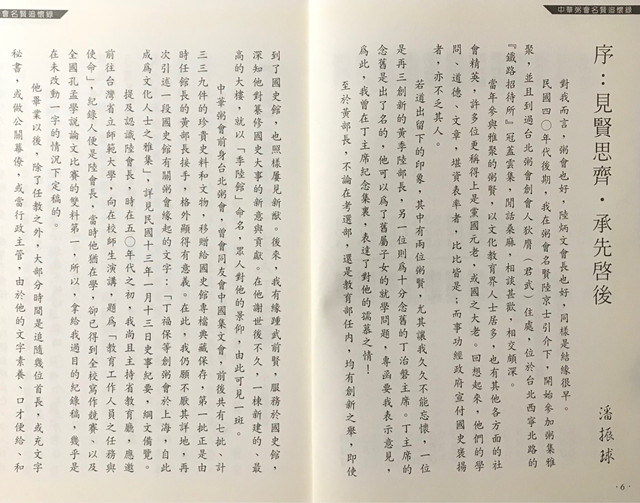 中華粥會名賢追懷錄
序：見賢思齊．承先啓後
潘振球
對我而言，粥會也好，陸炳文會長也好，同樣是結緣很早。
民國四○年代後期，我在粥會名賢陸京士引介下，開始參加粥集雅
聚，並且到過台北粥會創會人狄膺（君武）住處，位於台北西寧北路的
『鐵路招待所』冠蓋雲集，閒話桑麻，相談甚歡，相交頗深。
當年參與雅聚的粥賢，以文化教育界人士居多，也有其他各方面的社
會精英，許多位更稱得上是黨國元老，或國之大老。回想起來，他們的學
問、道德、文章，堪資表率者，比比皆是；而事功經政府宣付國史褒揚
者，亦不乏其人。
若道出留下的印象，其中有兩位粥賢，尤其讓我久久不能忘懷，一位
是再三創新的黃季陸部長，另一位則為十分念舊的丁治磐主席。丁主席的
念舊是出了名的，他可以為了舊屬子女的就學問題，專函要我表示意見，
為此，我曾在丁主席紀念集裏，表達了對他的孺慕之情！
至於黃部長，不論在考選部，還是教育部任內，均有創新之舉，即使
·6·
會名賢追懷錄
到了國史館，也照樣屢見新猷。後來，我有緣踵武前賢，服務於國史館，
深知他對纂修國史大事的新意與貢獻。在他謝世後不久，一棟新建的、最
高的大樓，就以「季陸館」命名，眾人對他的景仰，由此可見一斑。
中華粥會前身台北粥會，曾會同友會中國集文會，前後共有七批、計
三三九件的珍貴史料和文物，移贈給國史館專檔典藏保存，第一批正是由
時任館長的黃部長接手，格外顯得有意義。在此，我仍願不厭其詳地，再
次引述一段國史館有關粥會緣起的文字：「丁福保等創粥會於上海，自此
成為文化人士之雅集」，詳見民國十三年一月十三日史事紀要，綱文備覽。
提及認識陸會長，時在五○年代之初，我尚且主持省教育廳，應邀
前往台灣省立師範大學，向在校師生演講，題為「教育工作人員之任務與
使命」，紀錄人便是陸會長，當時他猶在學，卻已得到全校寫作競賽、以及
全國孔孟學說論文比賽的雙料第一，所以，拿給我過目的紀錄稿，幾乎是
在未改動一字的情況下定稿的。
他畢業以後，除了任教之外，大部分時間是追隨幾位首長，或充文字
秘書，或做公關幕僚，或當行政主管，由於他的文字素養、口才便給、和